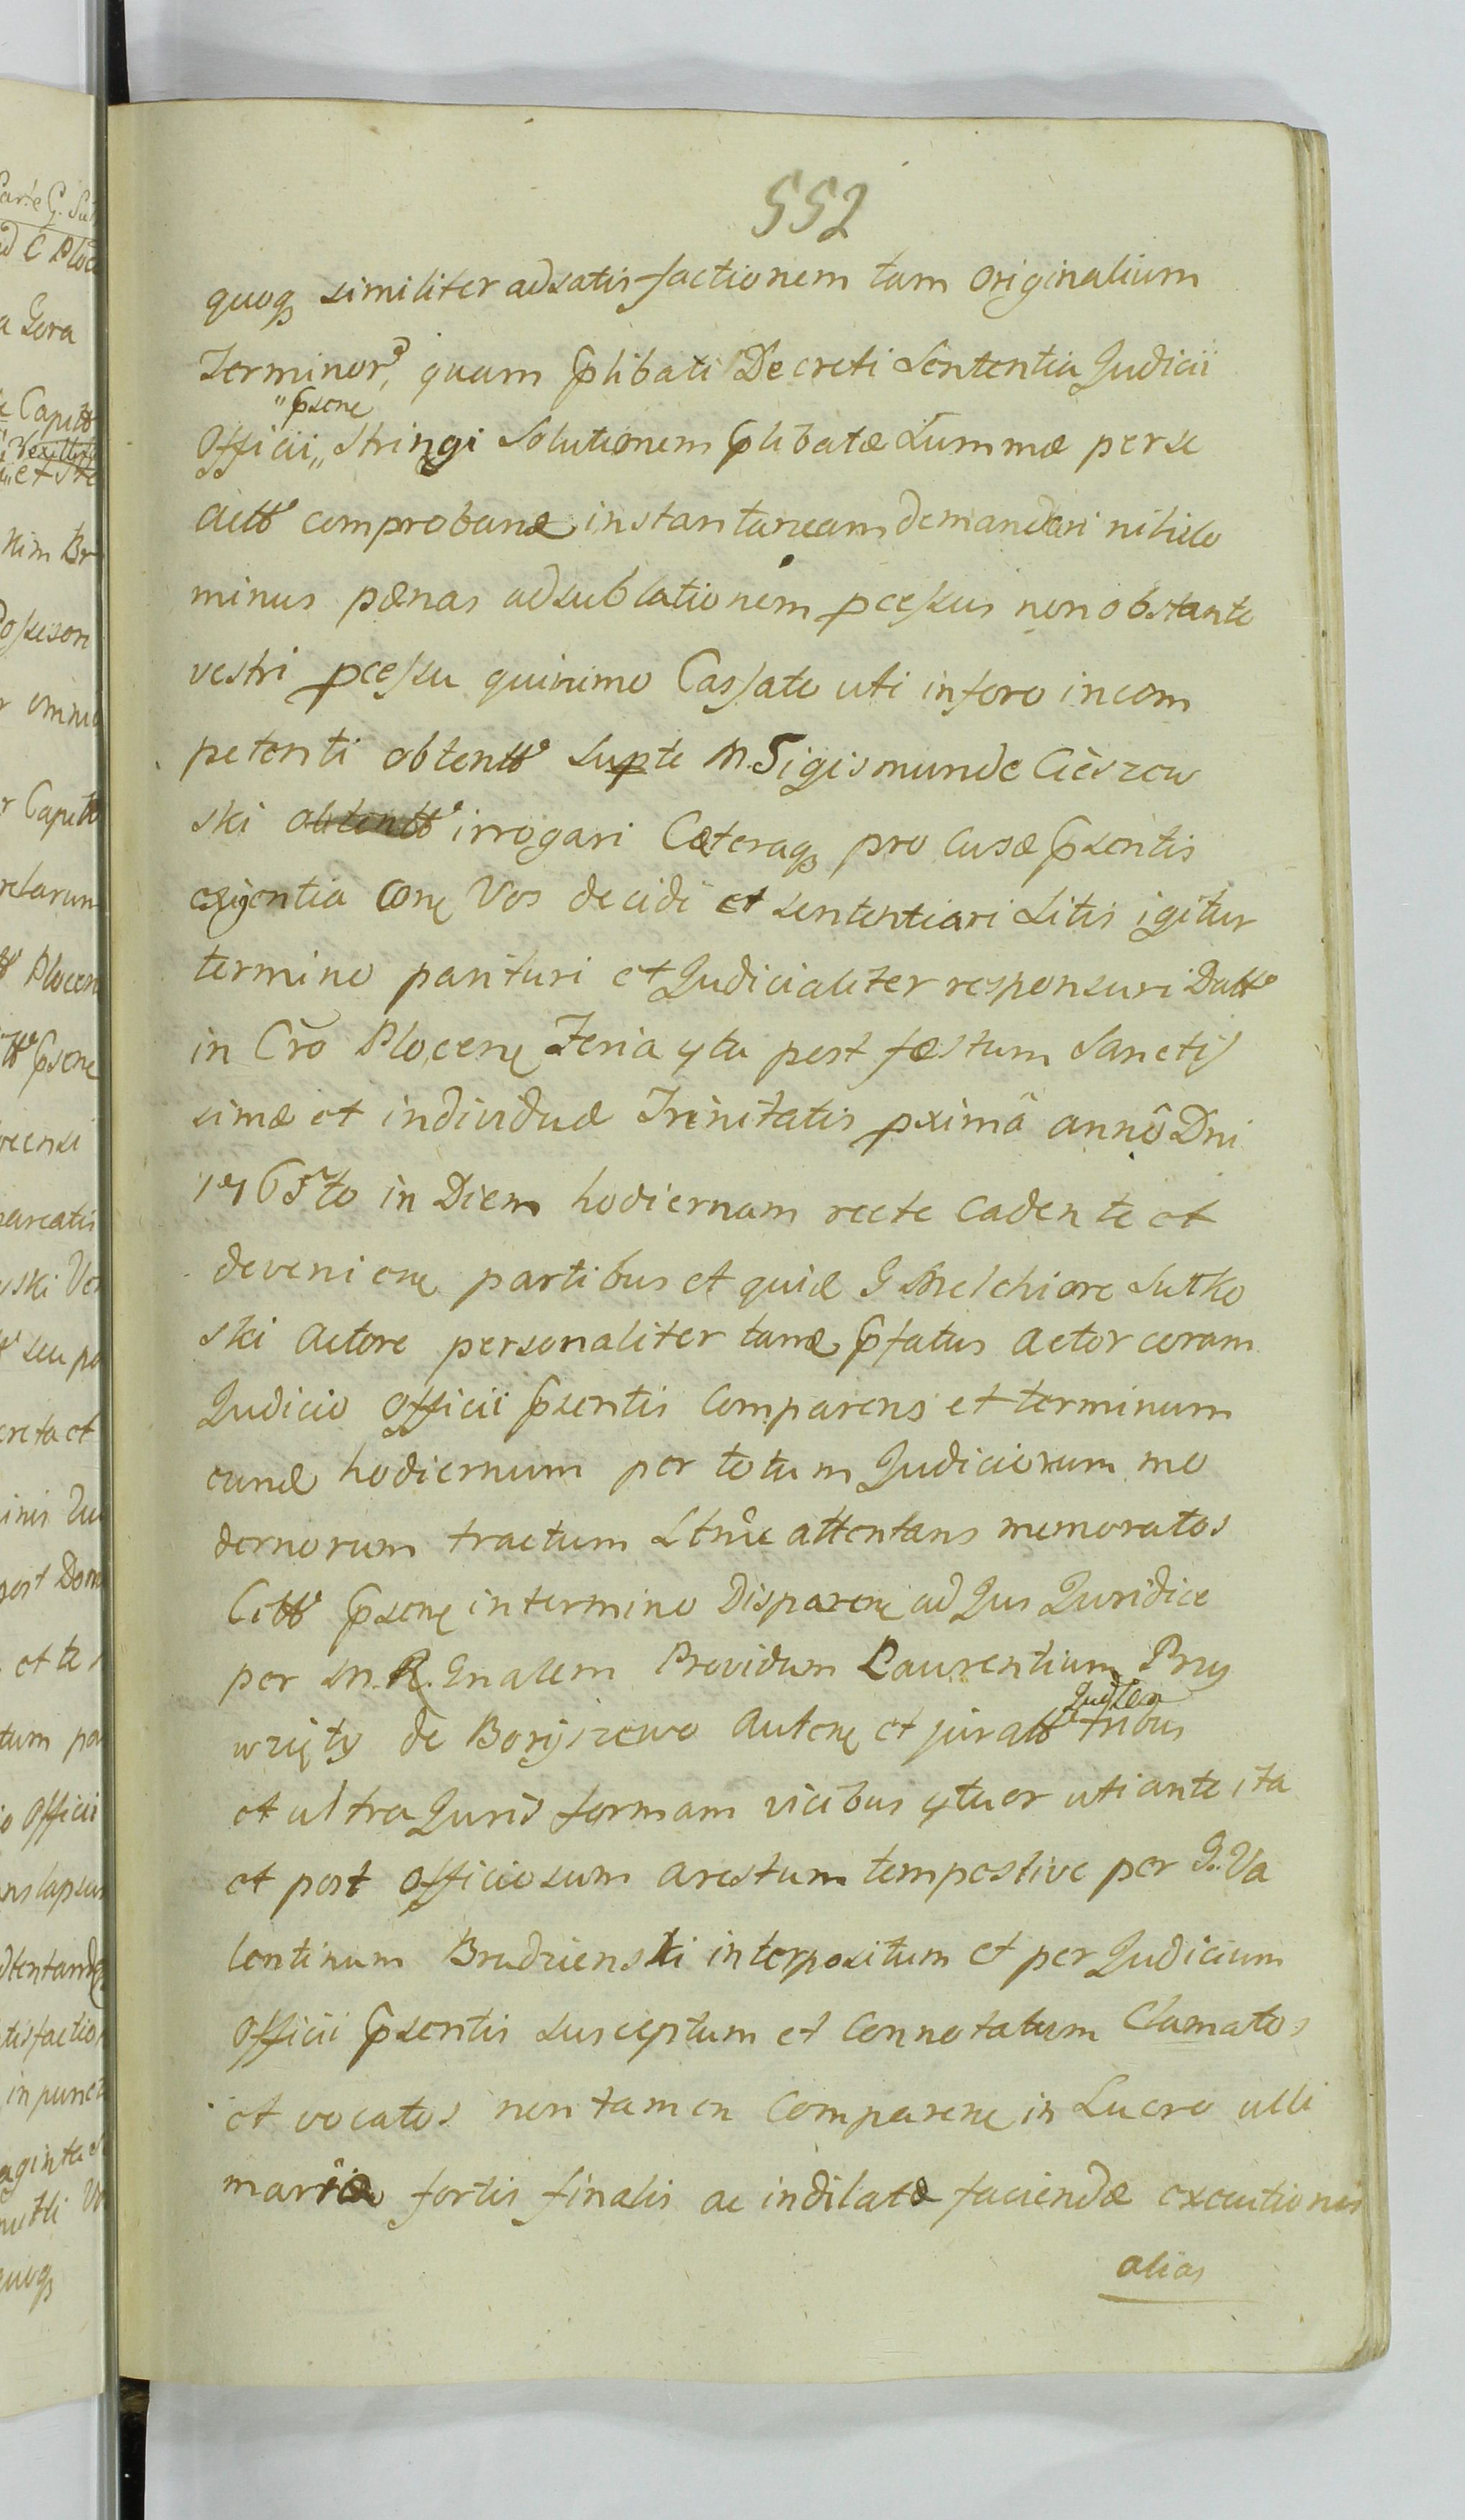 552
quoq₃ similiter ad satisfactionem tam originalium
Terminor, quam Plibati Decreti Sententia Judicii
"Psene
Officii„ Stringi Solutionem Plibatæ Summæ per se
Actt comproband instantaneam demandari nihilo
minus pænas ad sublationem pcessus non obstante
vestri pcessu quinimo Cassato uti in foro incom
petenti obtentt Supte M. Sigismunde Cieszew
ski irrogari Cæteraq₃ pro Cusæ Psentis
exigentia Cone Vos decidi et sententiari Litis igitur
termino parituri et Judicialiter responsuri Datt
in Cro Plocene Feria 4ta post fæstum Sanctis
simæ et individuæ Trinitatis pximâ annô Dni
1765to in Diem hodiernam recte Cadente et
deveniene partibus et quid G Melchiore Sutko
ski Actore personaliter tand Pfatus Actor coram
Judicio Officii Psentis Comparens et terminum
eund hodiernum per totum Judiciorum mo
dernorum tractum Ltme attentans memoratos
Citt Psene in termino Disparene ad Jus Juridice
per M.R. Gnalem Providum Laurentium Przy
Judlem
wzięty de Boryszewo Autene et juratt tribus
et ultra Juris formam vicibus ytuer uti ante ita
et post Officiosum arestum tempestive per G. Va
lentinum Brudzienski interpositum et per Judicium
Officii Psentis susceptum et Connotatum Clamatos
et vocatos non tamen Comparene in Lucro ulti
mariæ fortis finalis ac indilatæ faciendæ executionis
alias